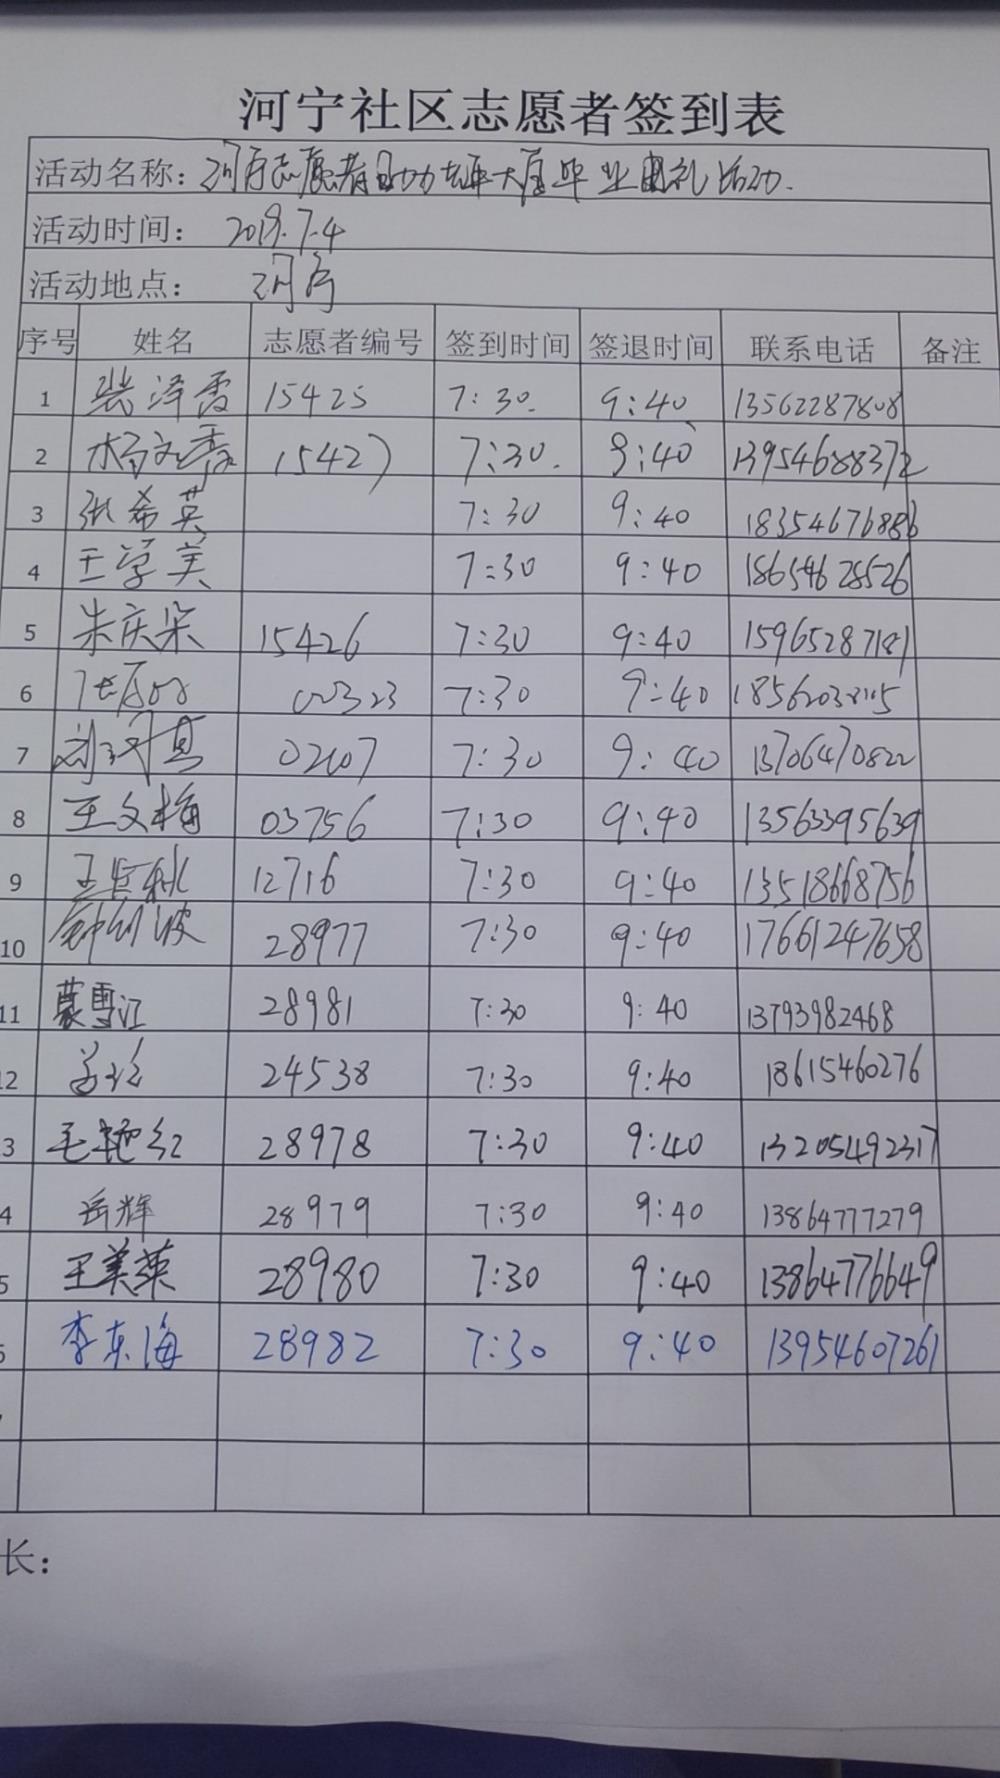 河宁社区志愿者签到表
活动名称：河宁志愿者助力老年大学毕业典礼活动.
活动时间： 2019.7.4
活动地点： 河宁
序号 姓名 志愿者编号 签到时间 签退时间 联系电话 备注
1 裴泽霞 15425 7:30. 9:40 13562287808
2 杨文秀 15427 7:30. 9:40 13954688372
3 张希英 7:30 9:40 18354676886
4 王学美 7:30 9:40 18654628526
5 朱庆荣 15426 7:30 9:40 15965287181
6 00323 7:30 9:40
7 02107 7:30 9:40 13706470822
8 王文梅 03756 7:30 9:40 13563395639
9 12716 7:30 9:40 13518668756
10 28977 7:30 9:40 17661247658
11 蒙雪江 28981 7:30 9:40 13793982468
2 24538 7:30 9:40 18615460276
3 毛艳红 28978 7:30 9:40 13205492317
4 岳辉 28979 7:30 9:40 13864777279
5 王美英 28980 7:30 9:40 13864776649
6 李东海 28982 7:30 9:40 13954607261
长：